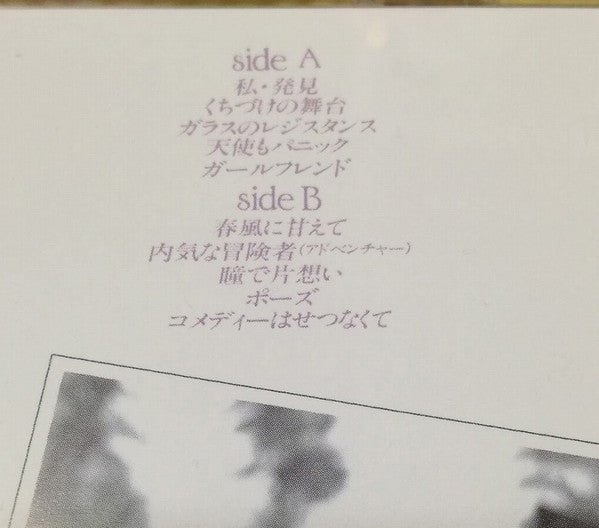 side A
私・発見
くちづけの舞台
ガラスのレジスタンス
天使もパニック
ガールフレンド
side B
春風に甘えて
内気な冒険者(アドベンチャー)
瞳で片想い
ポーズ
コメディーはせつなくて